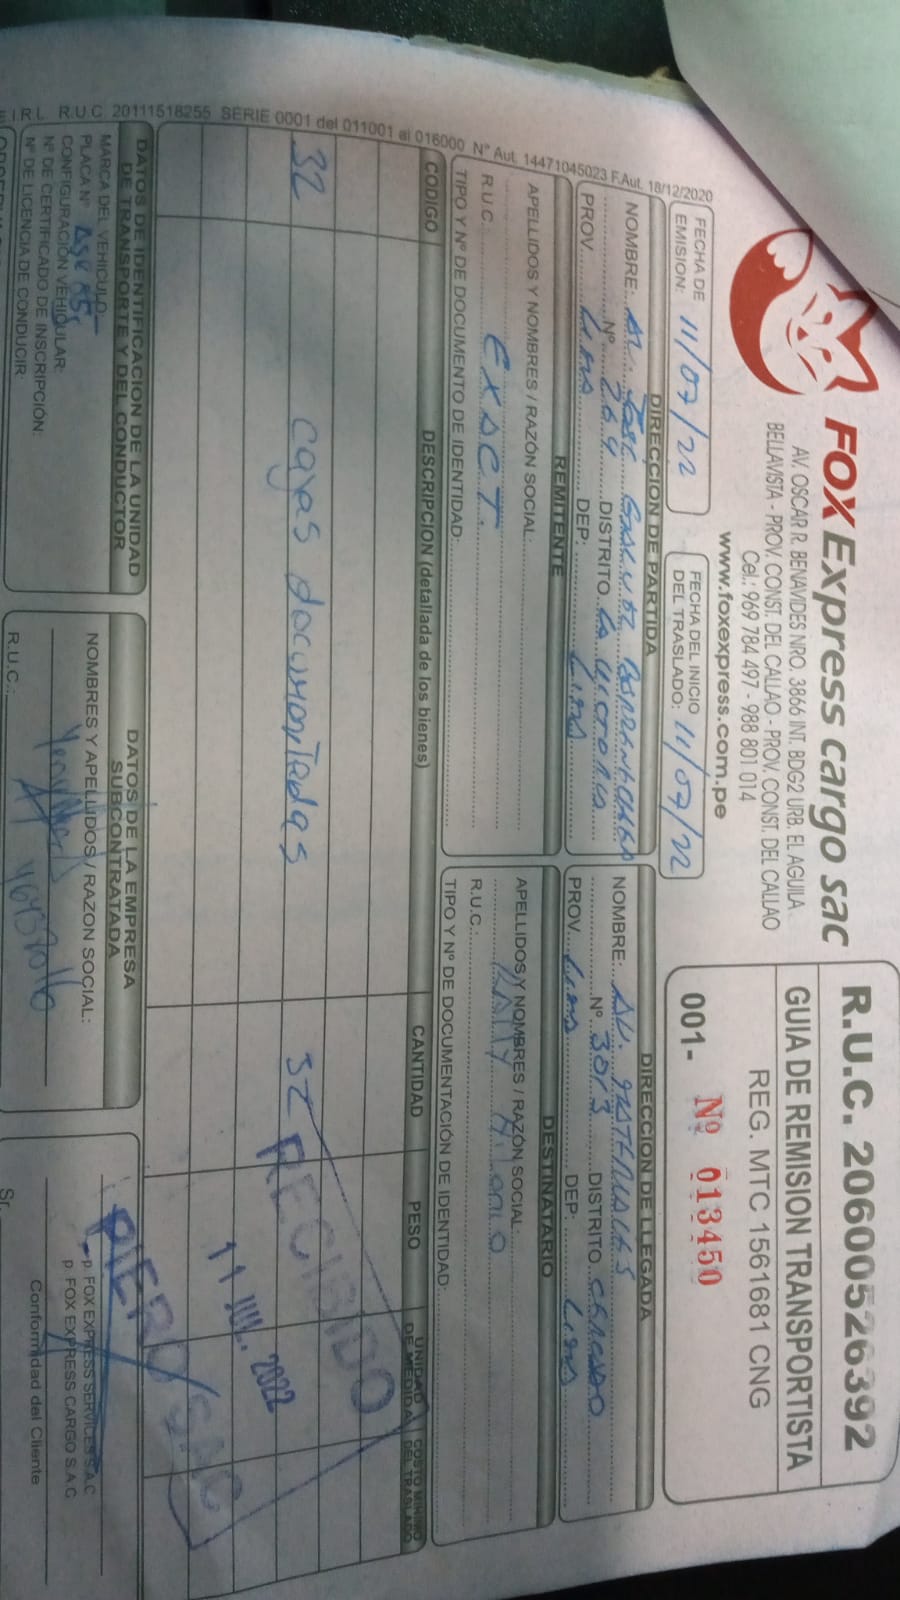 FOX Express cargo sac
AV. OSCAR R. BENAVIDES NRO. 3866 INT. BDG2 URB. EL AGUILA
BELLAVISTA - PROV. CONST. DEL CALLAO - PROV. CONST. DEL CALLAO
Cel.: 969 784 497 - 988 801 014
www.foxexpress.com.pe
R.U.C. 20600526392
GUIA DE REMISION TRANSPORTISTA
REG. MTC 1561681 CNG
001- Nº 013450
FECHA DE EMISION: 11/07/22
FECHA DEL INICIO DEL TRASLADO: 11/07/22
DIRECCION DE PARTIDA
NOMBRE: Av. José
Nº 264 DISTRITO La Victoria
PROV. Lima DEP: Lima
DIRECCION DE LLEGADA
NOMBRE: Av.
Nº 3013 DISTRITO Cercado
PROV. Lima DEP: Lima
REMITENTE
APELLIDOS Y NOMBRES / RAZÓN SOCIAL:
R.U.C. Exact.
TIPO Y Nº DE DOCUMENTO DE IDENTIDAD:
DESTINATARIO
APELLIDOS Y NOMBRES / RAZÓN SOCIAL:
R.U.C.:
TIPO Y Nº DE DOCUMENTACIÓN DE IDENTIDAD
CODIGO DESCRIPCION (detallada de los bienes) CANTIDAD PESO UNIDAD DE MEDIDA COSTO MINIMO DEL TRASLADO
32 cajas documentadas 32
RECIBIDO
11 JUL. 2022
DATOS DE IDENTIFICACION DE LA UNIDAD
DE TRANSPORTE Y DEL CONDUCTOR
MARCA DEL VEHICULO:
PLACA Nº
CONFIGURACIÓN VEHICULAR:
Nº DE CERTIFICADO DE INSCRIPCIÓN:
Nº DE LICENCIA DE CONDUCIR:
DATOS DE LA EMPRESA
SUBCONTRATADA
NOMBRES Y APELLIDOS / RAZON SOCIAL:
R.U.C.:
p. FOX EXPRESS SERVICES S.A.C
p. FOX EXPRESS CARGO S.A.C
Conformidad del Cliente
Sr.
E.I.R.L R.U.C. 20111518255 SERIE 0001 del 011001 al 016000 Nº Aut. 14471045023 F.Aut. 18/12/2020